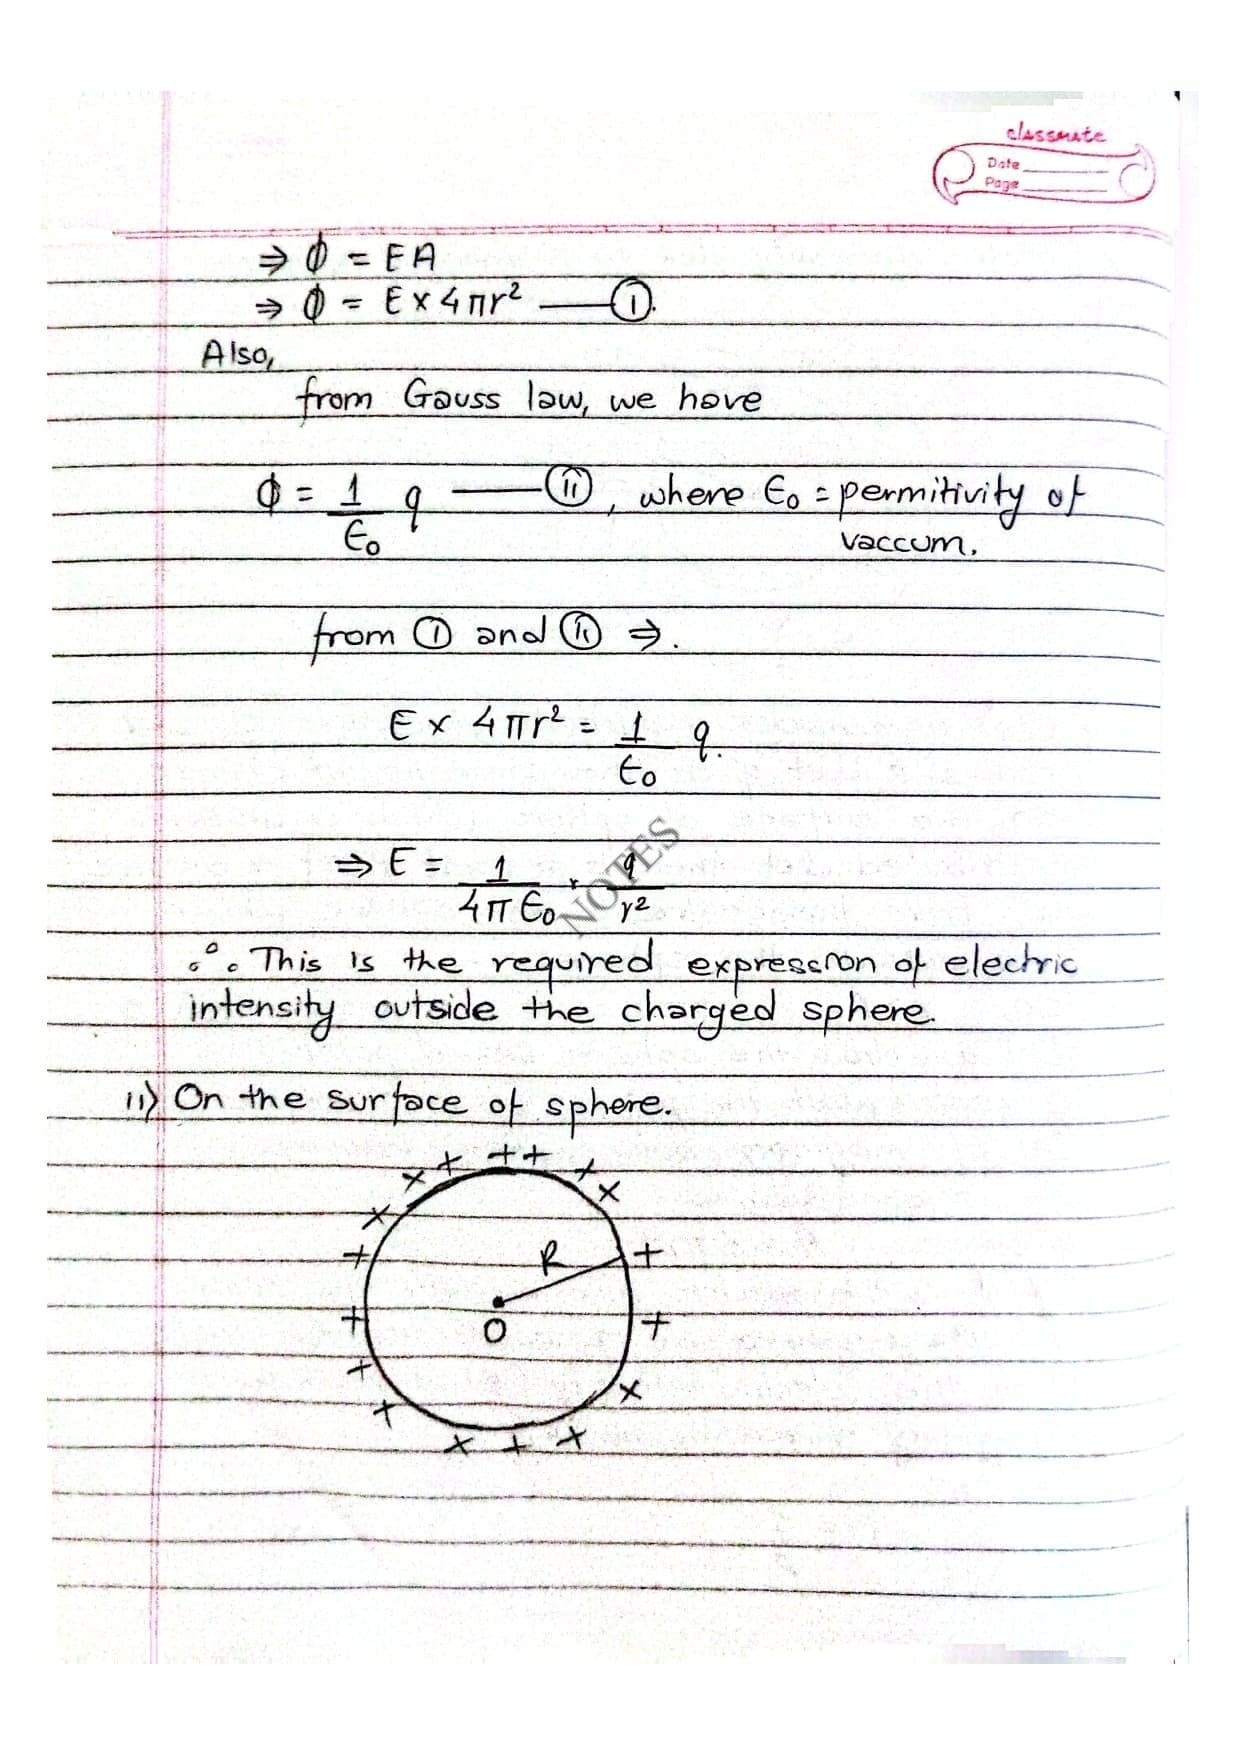 classmate
Date
Page
⇒ ϕ = EA
⇒ ϕ = E × 4πr² —— (i).
Also,
from Gauss law, we have
ϕ = 1/ϵ₀ q —— (ii), where ϵ₀ = permitivity of
vaccum.
from (i) and (ii) ⇒.
E × 4πr² = 1/ϵ₀ q.
⇒ E = 1/4πϵ₀ × q/r²
NOTES
∴ This is the required expression of electric
intensity outside the charged sphere.
ii) On the surface of sphere.
R
O